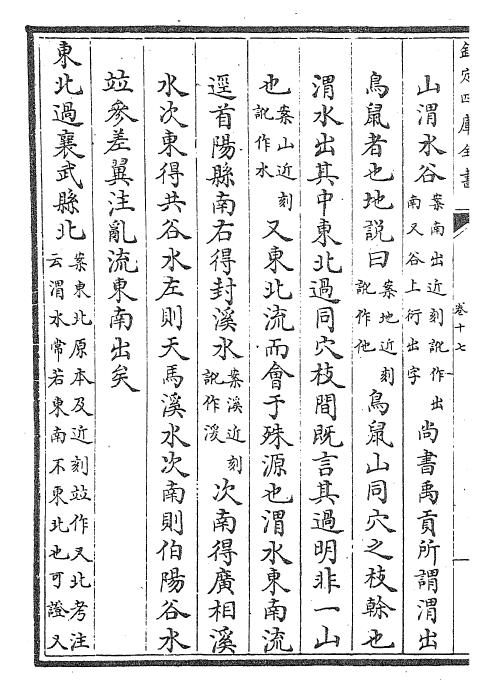 欽定四庫全書
卷十七
山渭水谷案南出近刻訛作出南又谷上衍出字尚書禹貢所謂渭出
鳥鼠者也地說曰案地近刻訛作他鳥鼠山同穴之枝榦也
渭水出其中東北過同穴枝間既言其過明非一山
也案山近刻訛作水又東北流而會于殊源也渭水東南流
逕首陽縣南右得封溪水案溪近刻訛作湲次南得廣相溪
水次東得共谷水左則天馬溪水次南則伯陽谷水
竝參差翼注亂流東南出矣
東北過襄武縣北案東北原本及近刻竝作又北考注云渭水常若東南不東北也可證又